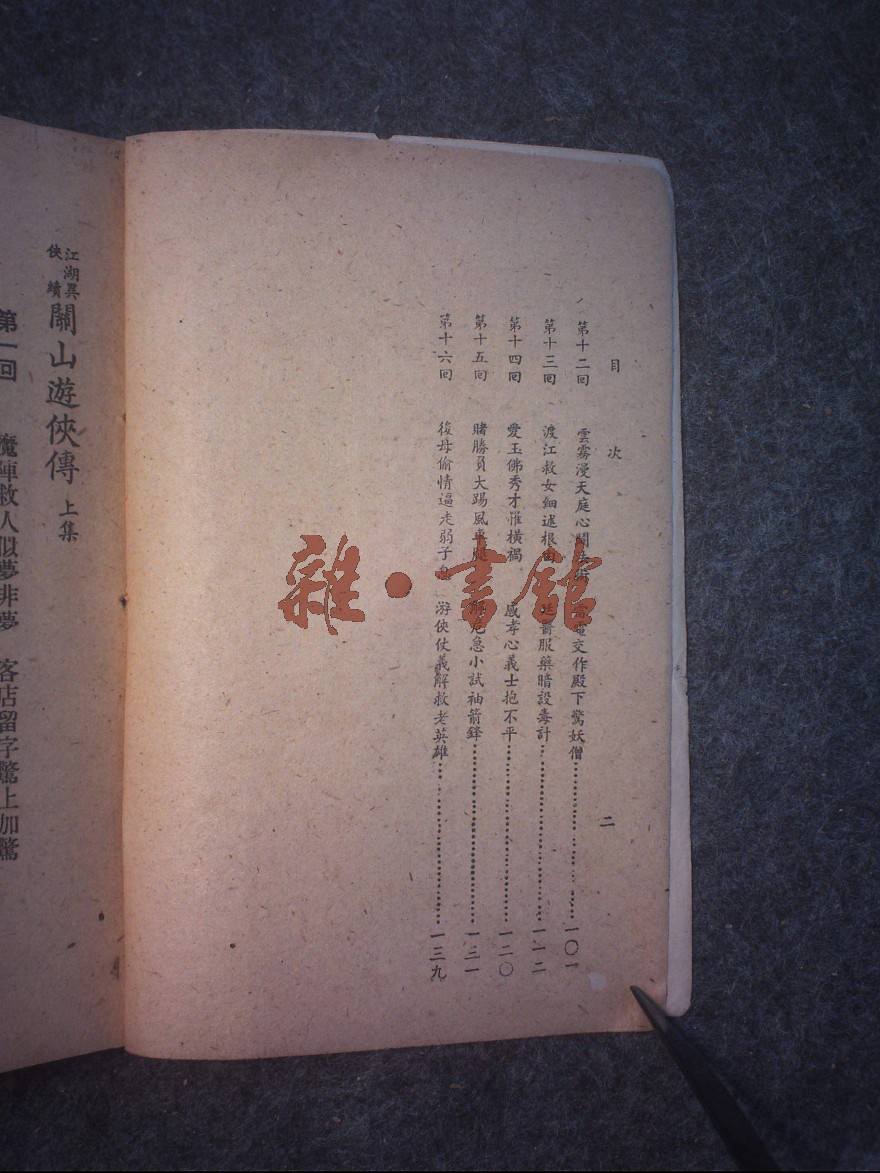 目次
第十二回 雲霧漫天庭心鬭法術 雷電交作殿下驚妖僧……一〇一
第十三回 渡江救女細述根由 延醫服藥暗設毒計……一一二
第十四回 愛玉佛秀才惟橫禍 感孝心義士抱不平……一二〇
第十五回 賭勝負大踢風車腿 解危急小試袖箭鋒……一三一
第十六回 後母偷情逼走弱子 游俠仗義解救老英雄……一三九
二
江湖異俠續 關山遊俠傳 上集
第一回 魔陣救人似夢非夢 客店留字驚上加驚
雜·書館